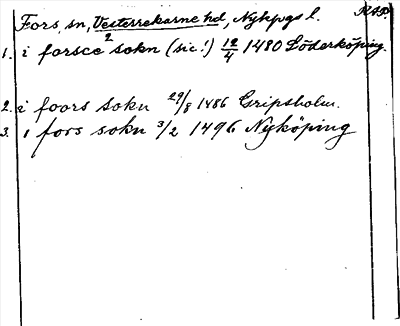 Fors sn, Vesterrekarne hd, Nykpgs l. RAP.
1. i forsce sokn (sic!) 12/4 1480 Söderköping.
2
2. i foors sokn 29/8 1486 Gripsholm.
3. i fors sokn 3/2 1496 Nyköping